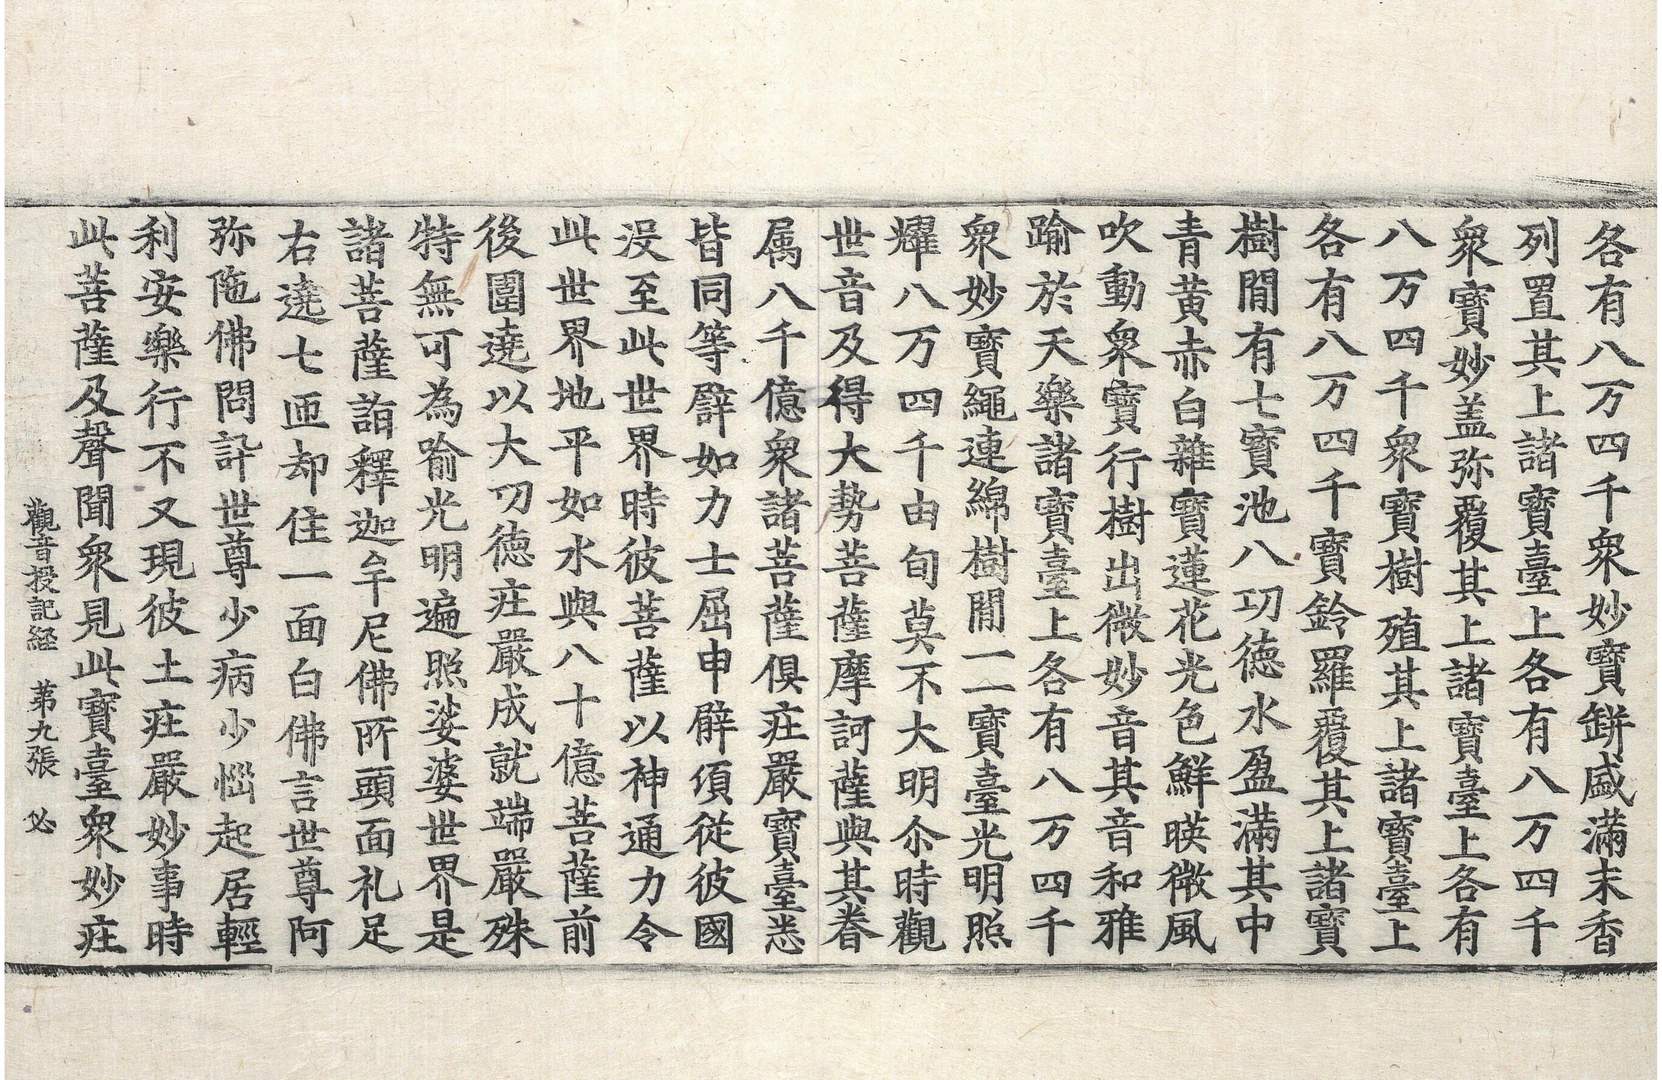 各有八万四千衆妙寳缾盛滿末香
列置其上諸寳臺上各有八万四千
衆寳妙盖弥覆其上諸寳臺上各有
八万四千衆寳樹殖其上諸寳臺上
各有八万四千寳鈴羅覆其上諸寳
樹閒有七寳池八功徳水盈滿其中
青黄赤白雜寳蓮花光色鮮暎微風
吹動衆寳行樹出微妙音其音和雅
踰於天樂諸寳臺上各有八万四千
衆妙寳繩連綿樹閒一一寳臺光明照
耀八万四千由旬莫不大明尒時觀
世音及得大勢菩薩摩訶薩與其眷
属八千億衆諸菩薩俱庄嚴寳臺悉
皆同等譬如力士屈申臂須從彼國
没至此世界時彼菩薩以神通力令
此世界地平如水與八十億菩薩前
後圍遶以大功徳庄嚴成就端嚴殊
特無可為喻光明遍照娑婆世界是
諸菩薩詣釋迦牟尼佛所頭面礼足
右遶七匝却住一面白佛言世尊阿
弥陁佛問訊世尊少病少惱起居輕
利安樂行不又現彼土庄嚴妙事時
此菩薩及聲聞衆見此寳臺衆妙庄
觀音授記経 苐九張 必